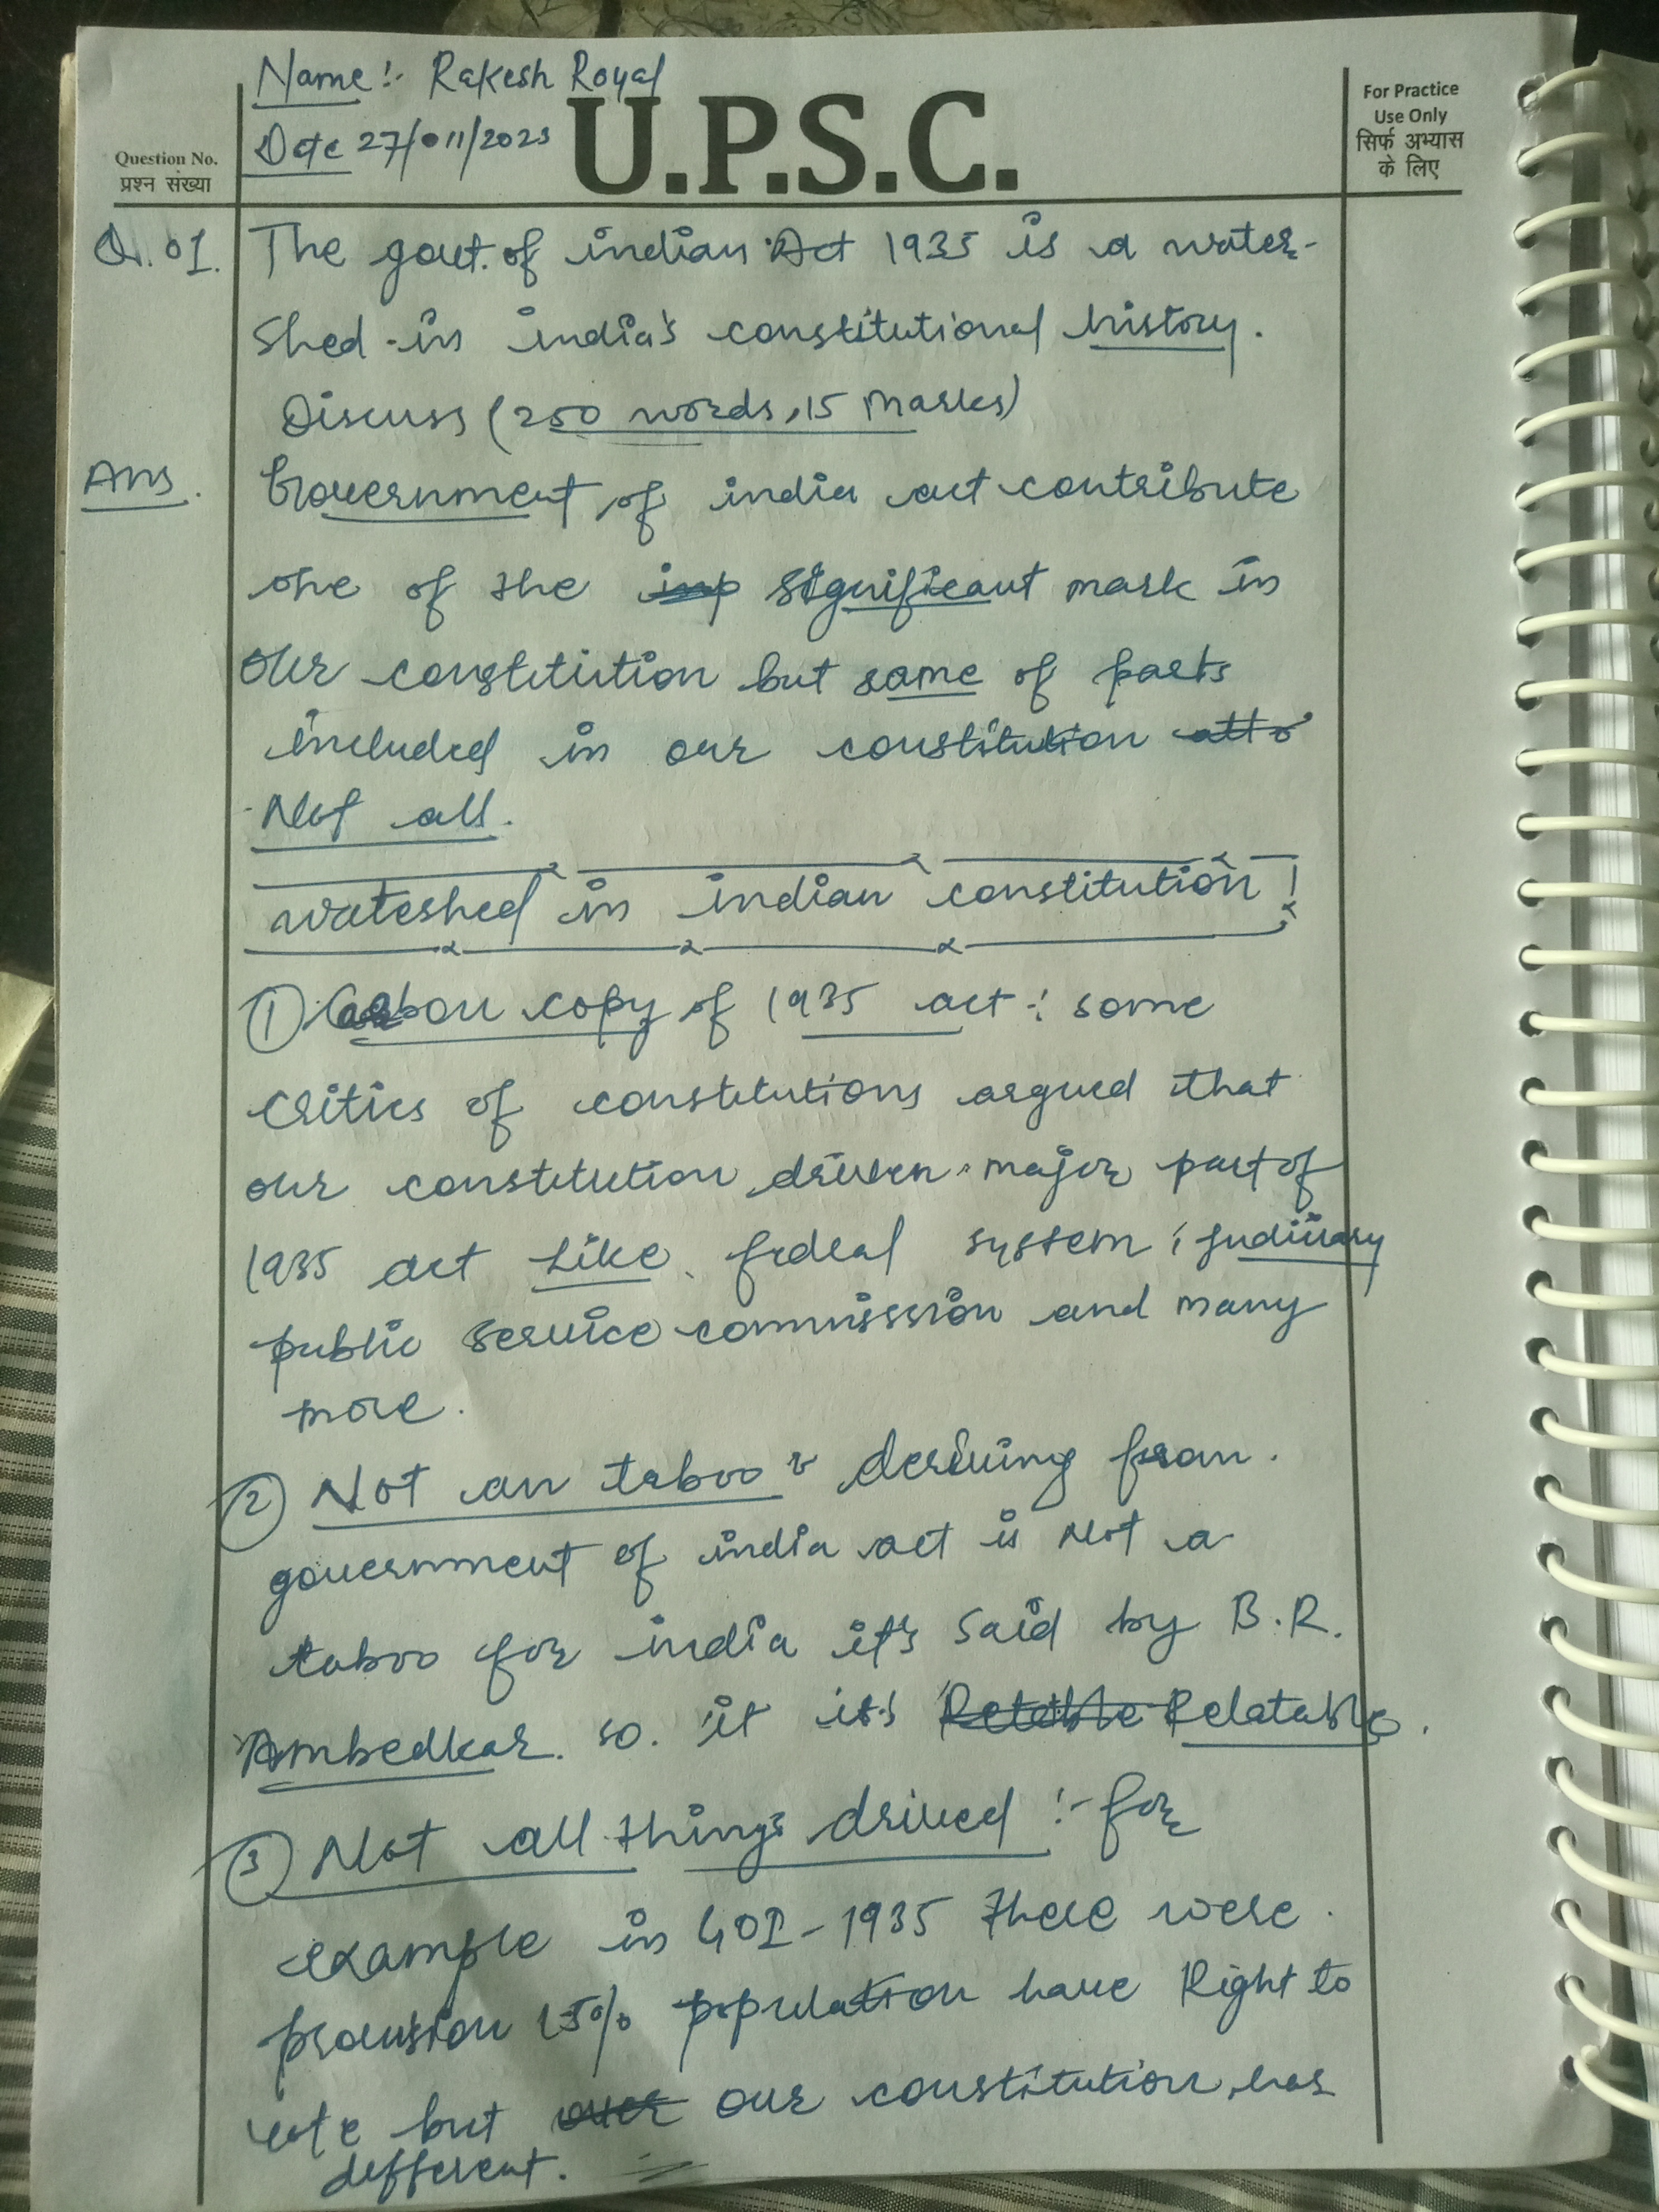 Name:- Rakesh Royal
Date 27/011/2023
U.P.S.C.
For Practice
Use Only
सिर्फ अभ्यास
के लिए
Question No.
प्रश्न संख्या
Q. 01. The govt. of indian Act 1935 is a water-
shed in india's constitutional history.
Discuss (250 words, 15 Marks)
Ans. Government of india act contribute
one of the imp significant mark in
our constitution but some of parts
included in our constitution
Not all.
wateshed in indian constitution!
① Carbon copy of 1935 act : some
critics of constitutions argued that
our constitution driven major part of
1935 act Like federal system, judiciary
public service commission and many
more.
② Not an taboo : deriving from
government of india act is Not a
taboo for india it's said by B.R.
Ambedkar. so. it is Relatable.
③ Not all things drived :- for
example in GOI-1935 there were
provision 15% population have Right to
vote but over our constitution has
different.